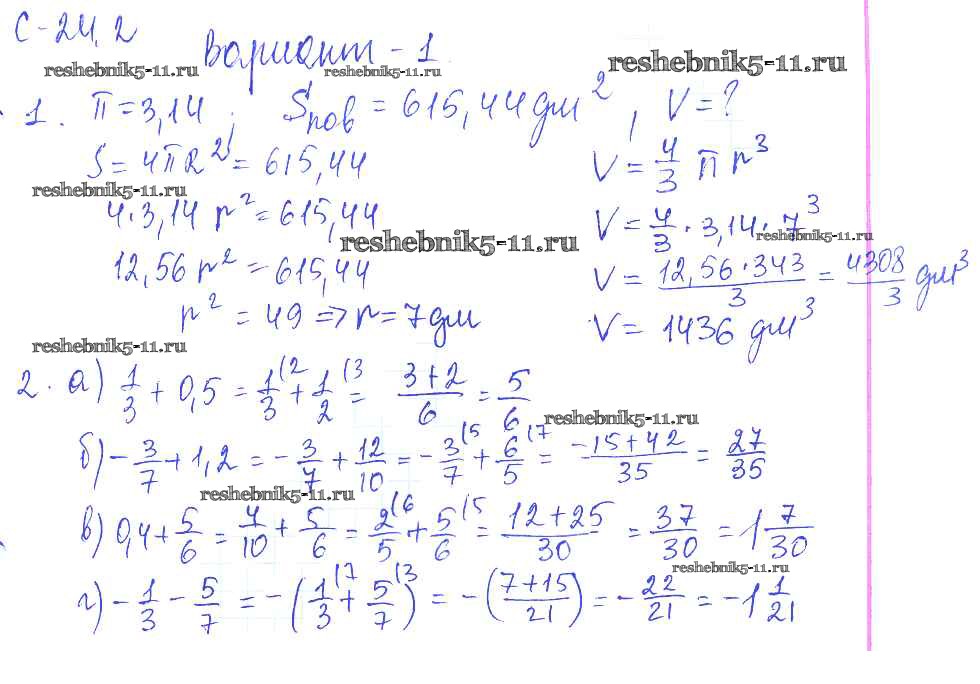 С-24,2
Вариант - 1
reshebnik5-11.ru reshebnik5-11.ru reshebnik5-11.ru
1. π = 3,14; Sпов = 615,44 дм², V = ?
S = 4πR² = 615,44 V = 4/3 π r³
reshebnik5-11.ru
4·3,14 r² = 615,44 V = 4/3 · 3,14 · 7³
reshebnik5-11.ru reshebnik5-11.ru
12,56 r² = 615,44 V = 12,56·343/3 = 4308/3 дм³
r² = 49 => r = 7 дм V = 1436 дм³
reshebnik5-11.ru
2. а) 1/3 + 0,5 = 1/3 (2 + 1/2 (3 = 3+2/6 = 5/6
reshebnik5-11.ru
б) -3/7 + 1,2 = -3/7 + 12/10 = -3/7 (5 + 6/5 (7 = -15+42/35 = 27/35
reshebnik5-11.ru
в) 0,4 + 5/6 = 4/10 + 5/6 = 2/5 (6 + 5/6 (5 = 12+25/30 = 37/30 = 1 7/30
reshebnik5-11.ru
г) -1/3 - 5/7 = -(1/3 (7 + 5/7 (3) = -(7+15/21) = -22/21 = -1 1/21